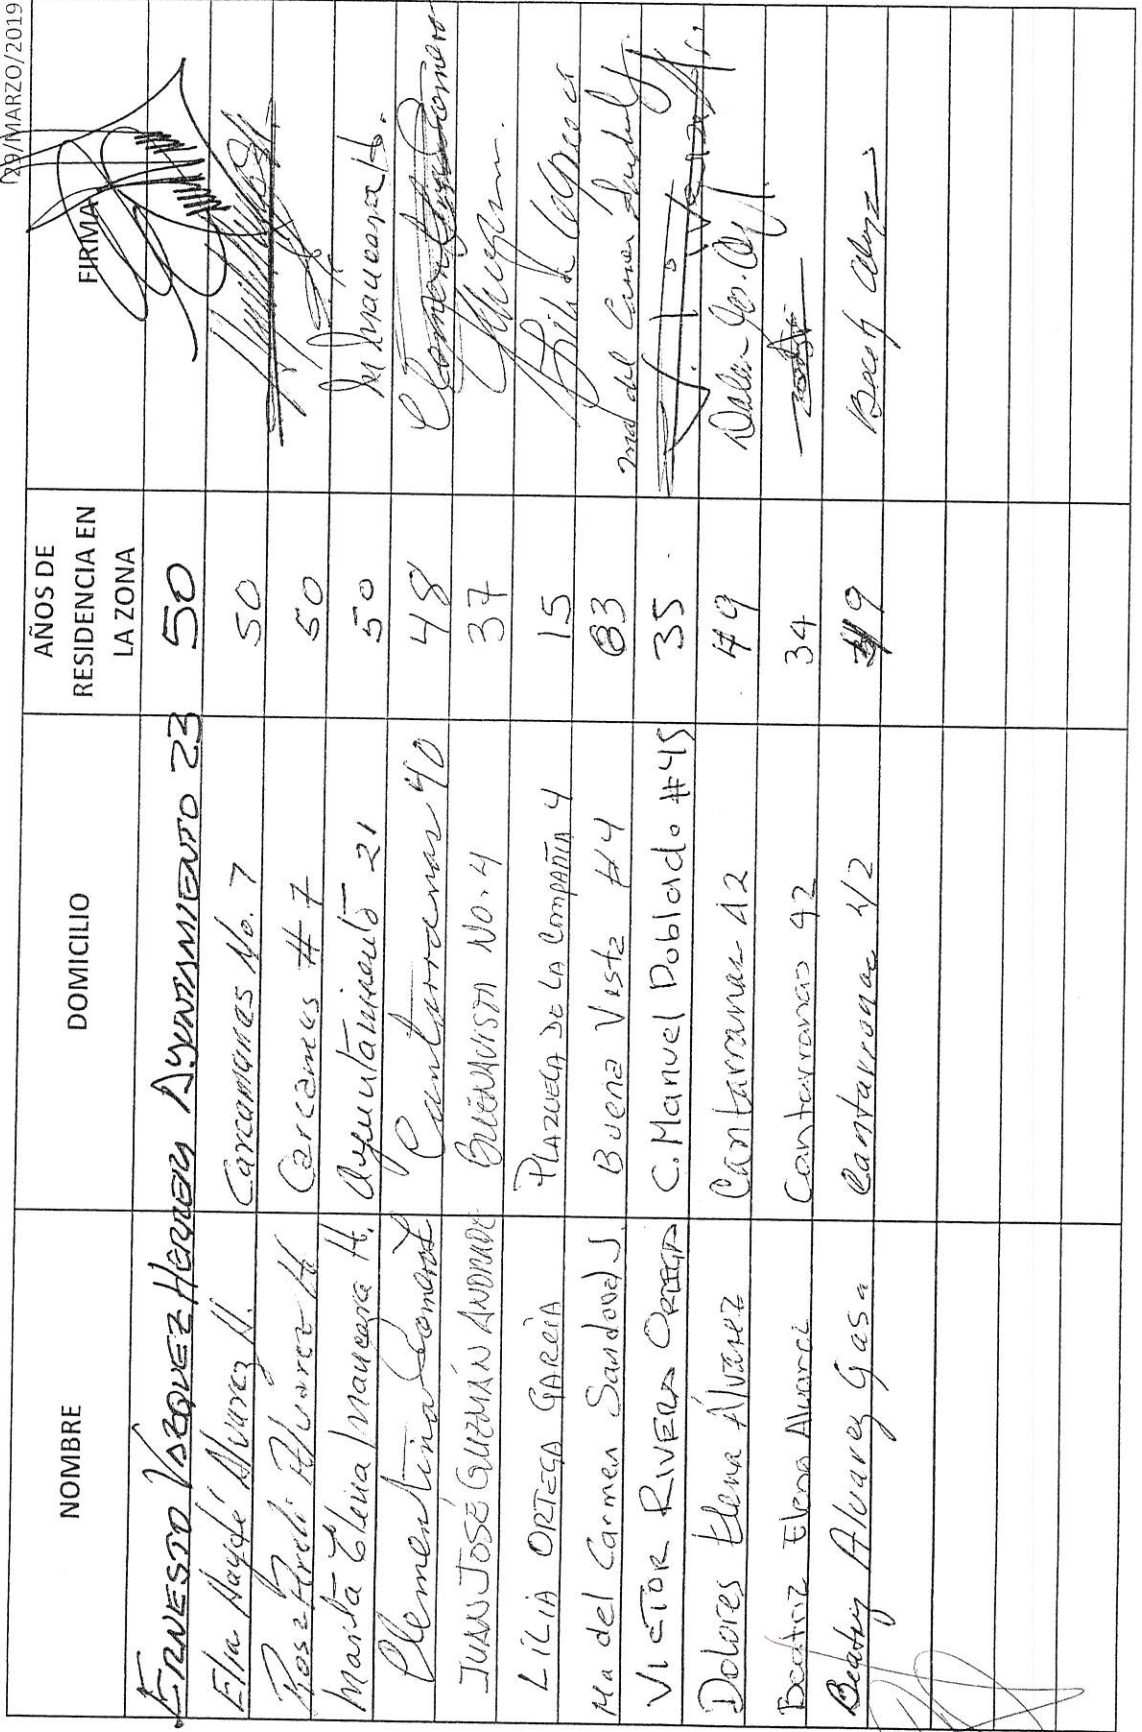 29/MARZO/2019
NOMBRE DOMICILIO AÑOS DE RESIDENCIA EN LA ZONA FIRMA
ERNESTO VAZQUEZ HERRERA AYUNTAMIENTO 23 50
Elia Haydé Alvarez H. Carcamanes No. 7 50
Rosa Areli Alvarez H Carcamus # 7 50
Marita Elena Mancera H. Ayuntamiento 21 50 M Mancera H.
Clementina Cantarranas 40 48 Clementina
JUAN JOSÉ GUZMÁN ANDRADE BUENAVISTA No. 4 37
LILIA ORTEGA GARCÍA PLAZUELA DE LA COMPAÑIA 4 15
Ma del Carmen Sandoval J Buena Vista #4 83 Ma del Carmen
VICTOR RIVERA ORTEGA C. Manuel Doblado #45 35
Dolores Elena Álvarez Cantarranas 42 49
Beatriz Elena Alvarez Cantarranas 42 34
Beatriz Alvarez Gasa Cantarranas 42 49